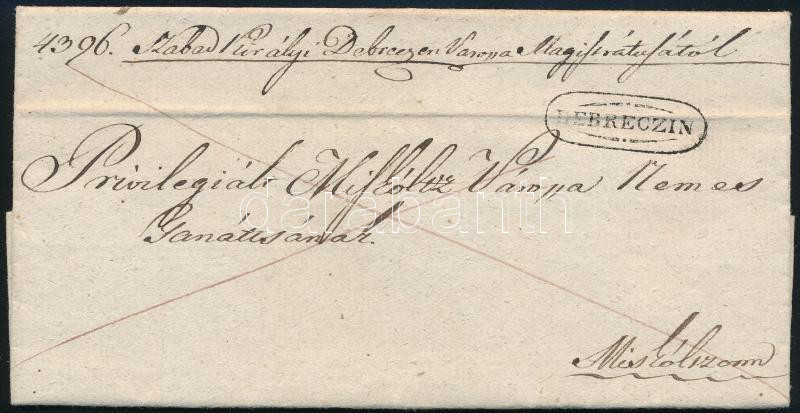 4396. Szabad Királyi Debreczen Várossa Magistrátusától
DEBRECZIN
Privilegiált Miskóltz Várossa Nemes
Tanáttsának.
darabanth
Miskóltzonn